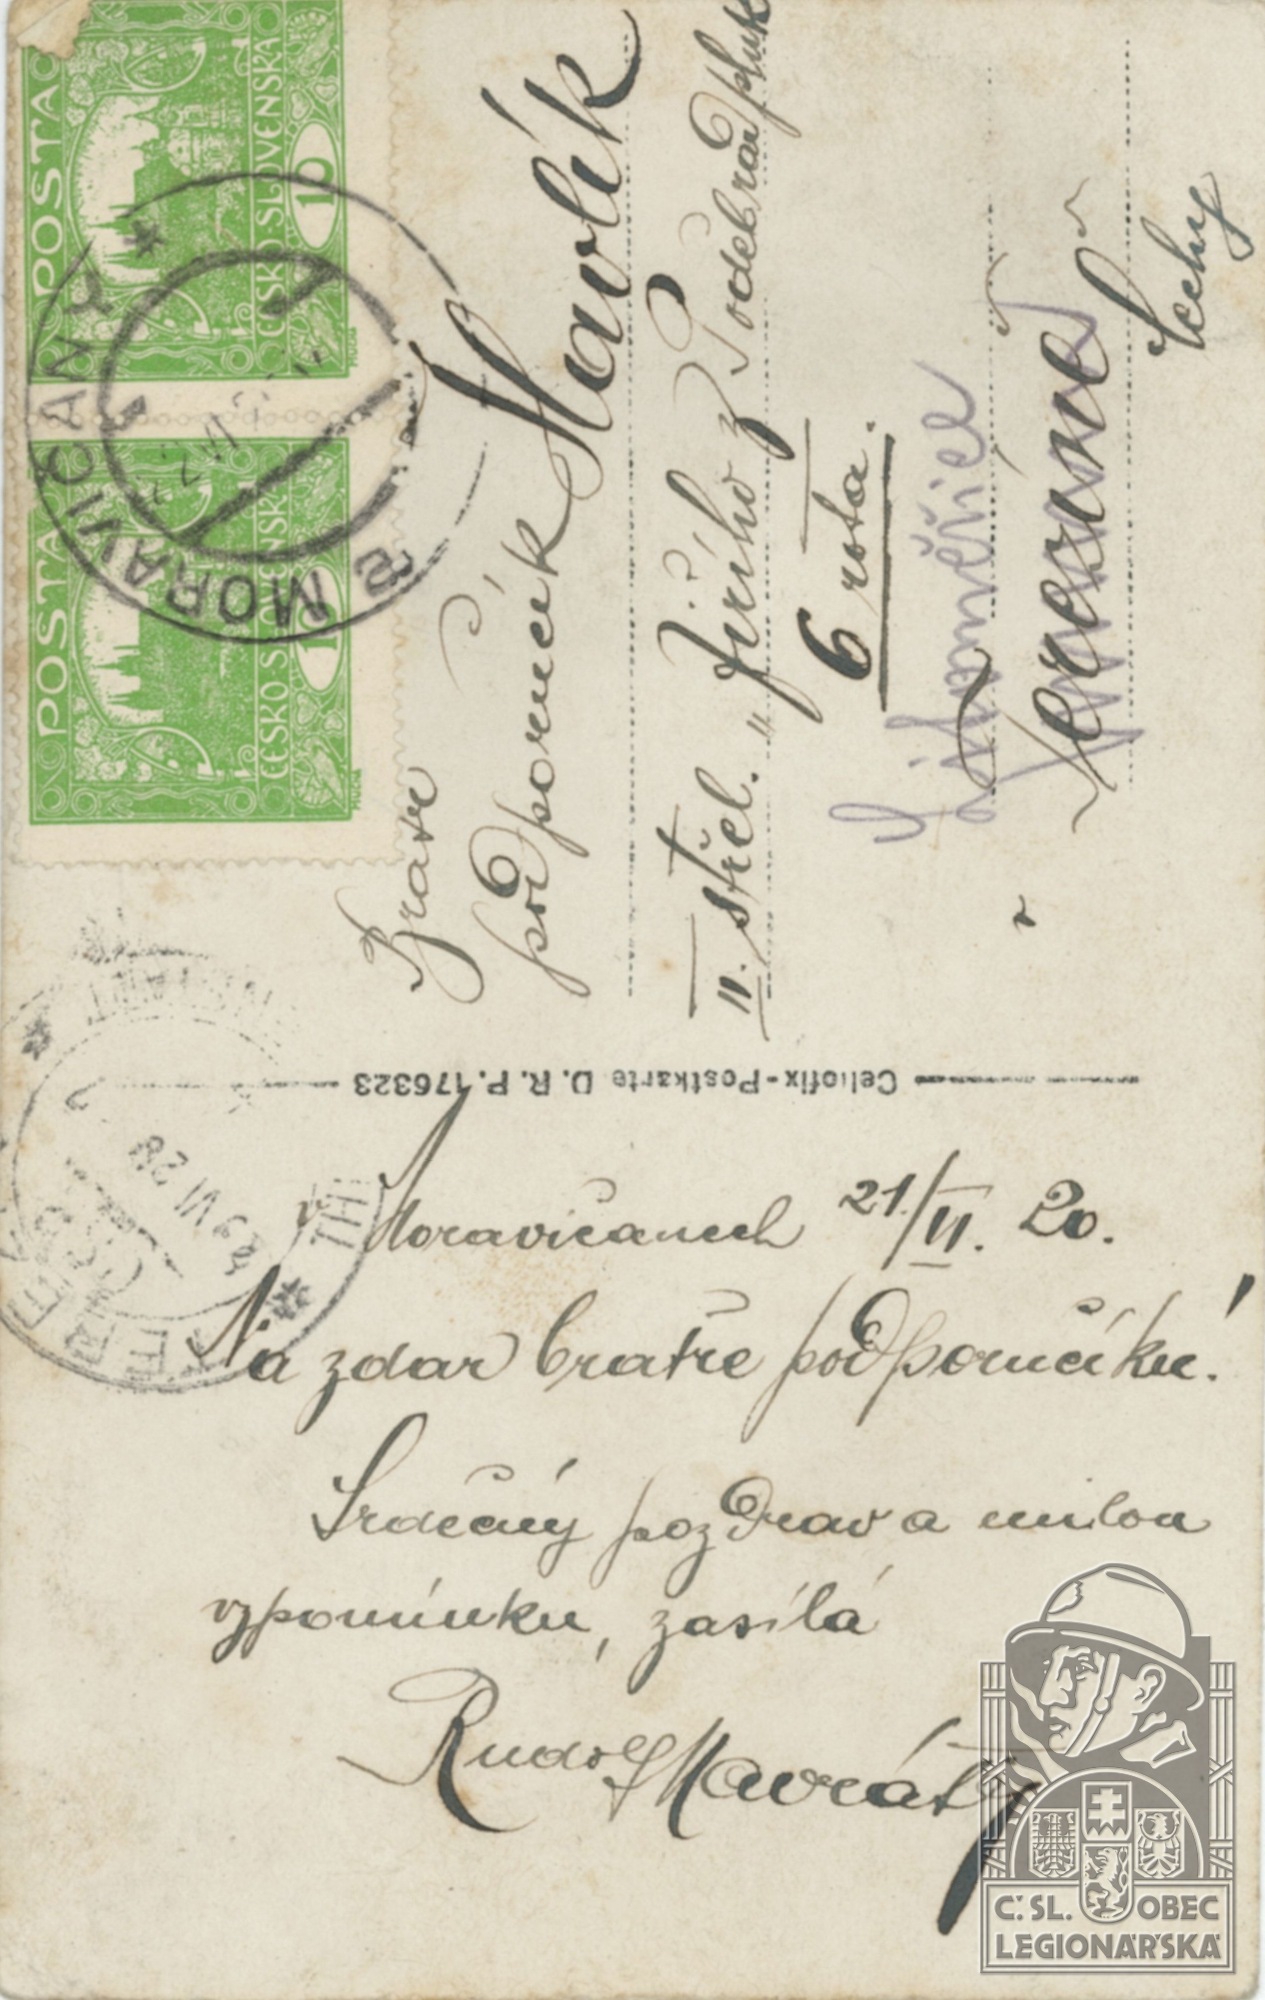 POSTA
ČESKO SLOVENSKÁ
10
MUCHA
POSTA
ČESKO SLOVENSKÁ
10
MUCHA
MORAVIČANY
Bratr
podporučík Havlík
11. střel. "Jiřího z Poděbrad" pluk
6 rota.
Litoměřice
v Terezíně
Čechy
Celiofix-Postkarte D. R. P. 176323
V Moravičanech 21./VI. 20.
Na zdar bratře podporučíku!
Srdečný pozdrav a milou
vzpomínku, zasílá
Rudolf Navrátil
Č. SL. OBEC
LEGIONÁŘSKÁ